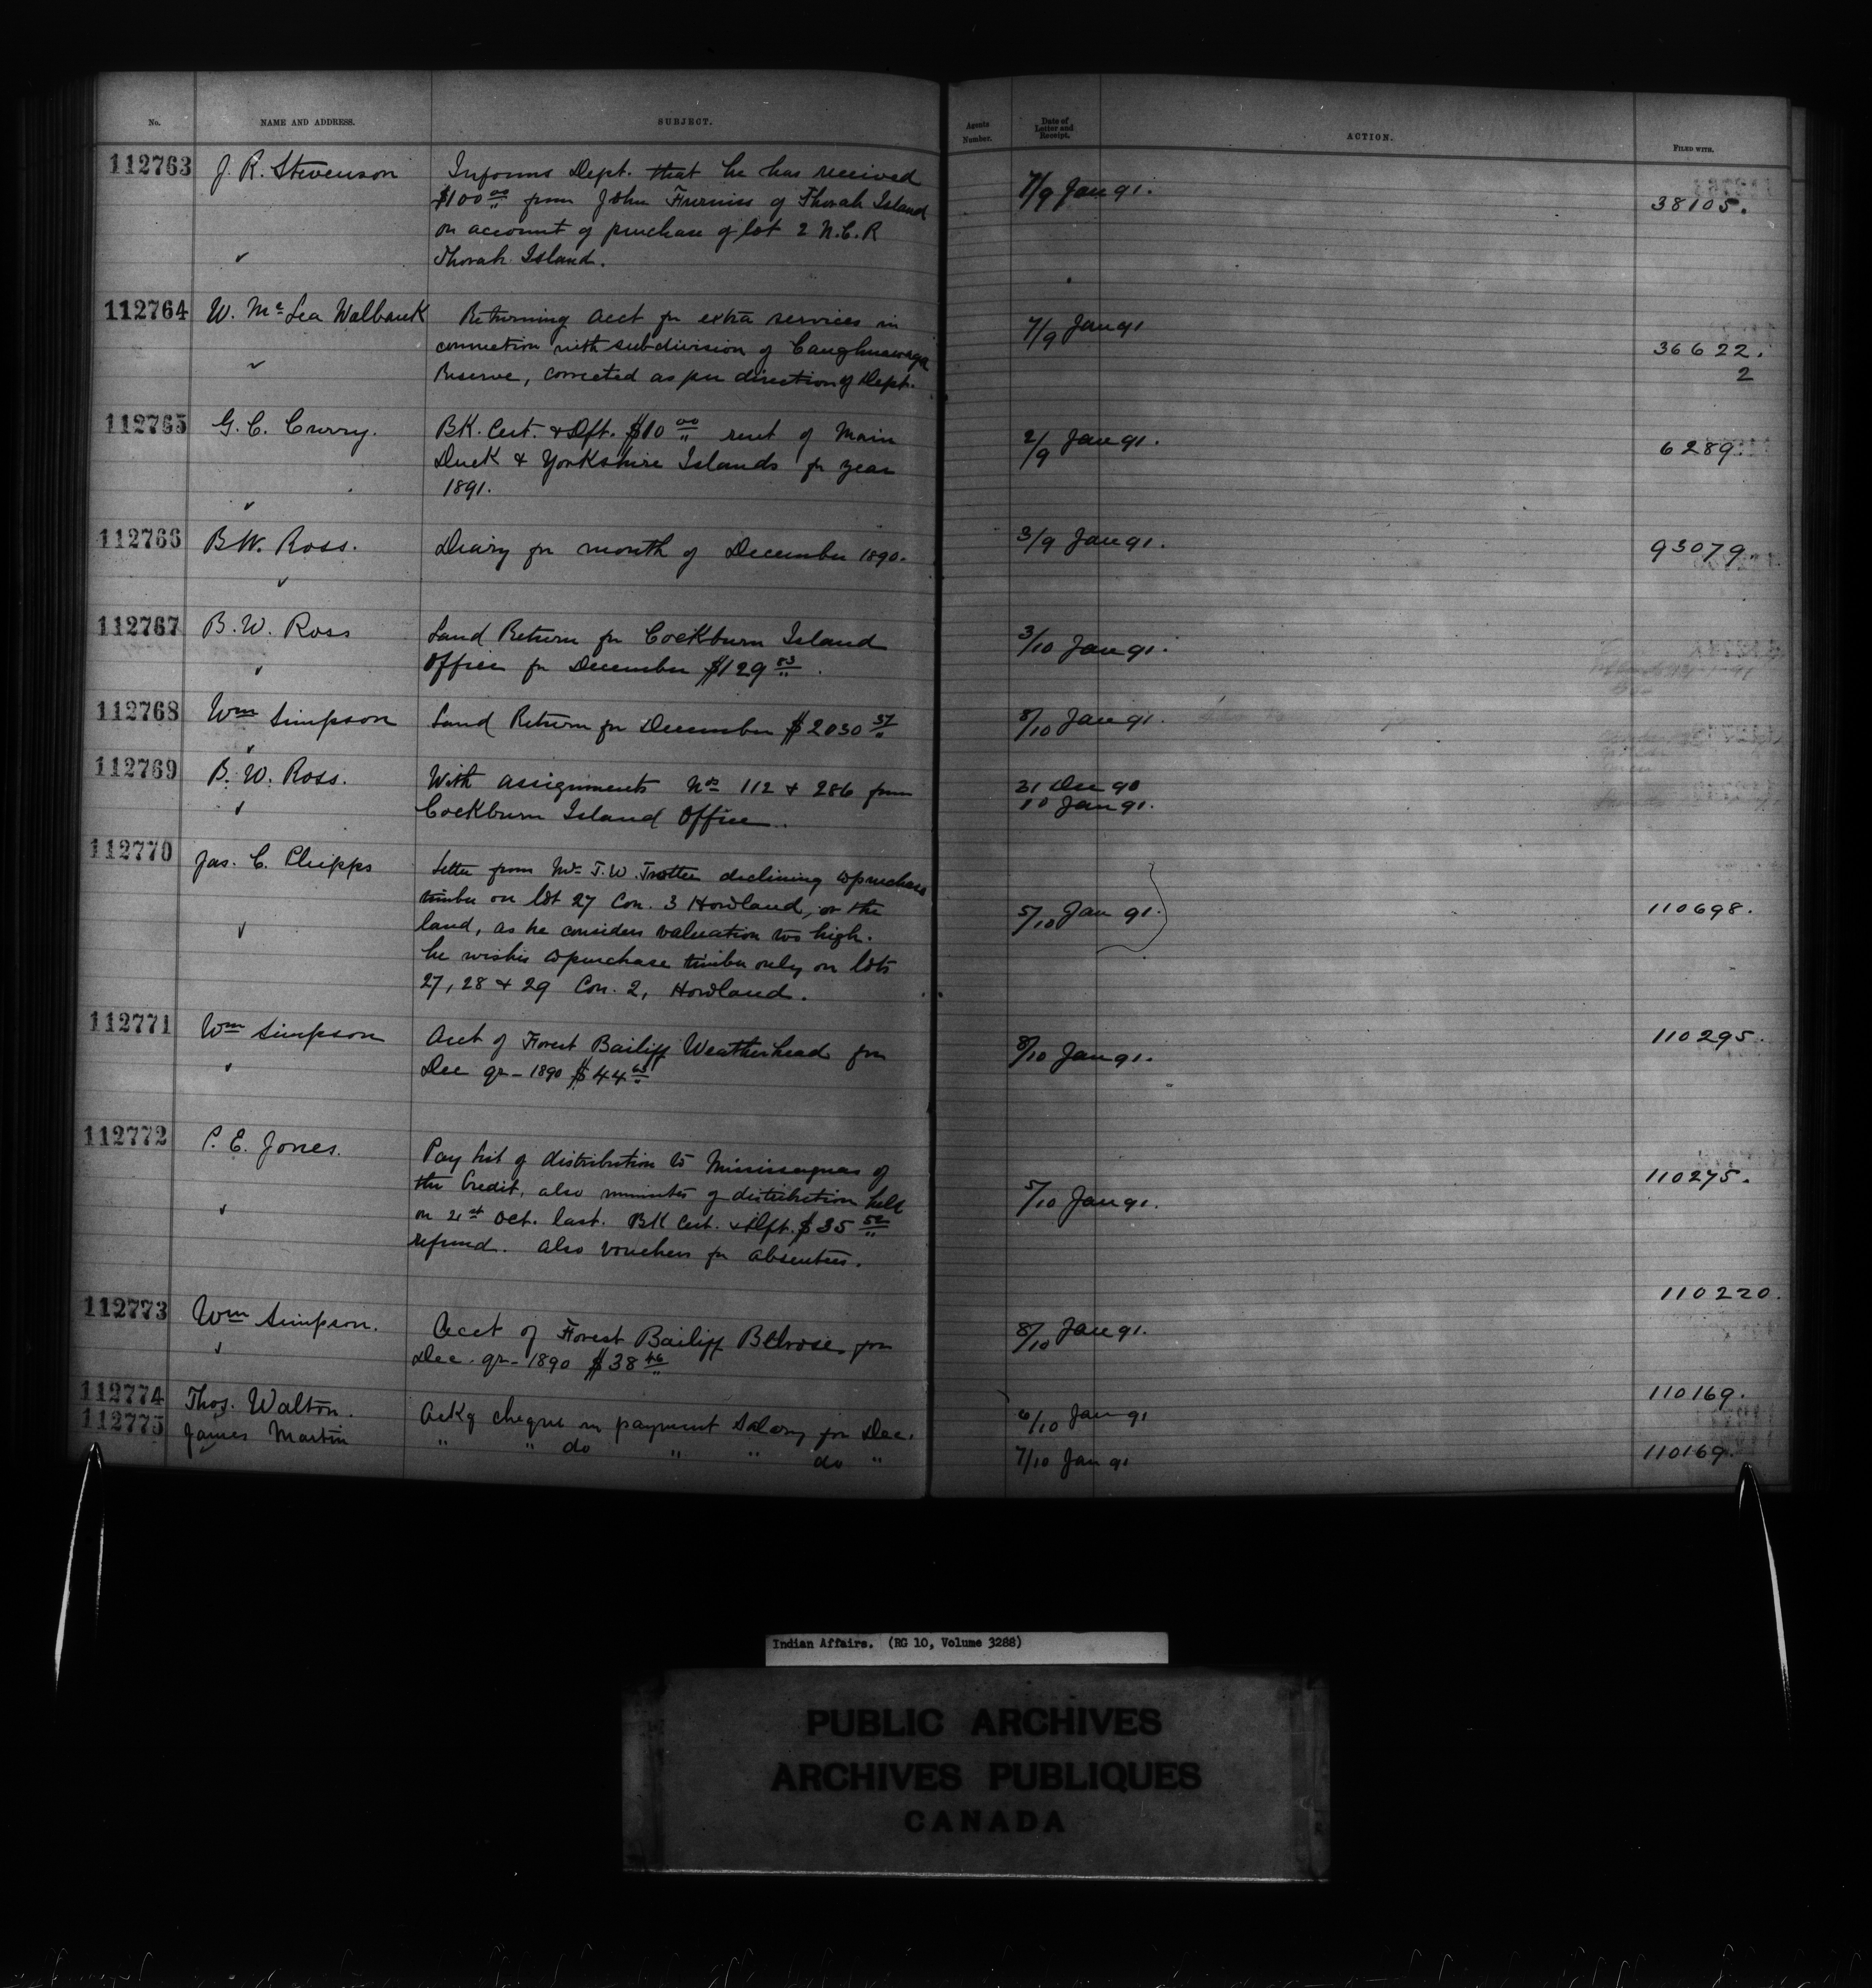 No. NAME AND ADDRESS. SUBJECT. Agents Number. Date of Letter and Receipt. ACTION. FILED WITH.
112763 J. R. Stevenson Informs Dept. that he has received 7/9 Jan 91. 38105.
$100 00 from John Furniss of Thorah Island
on account of purchase of lot 2 N.C.R
Thorah Island.
112764 W. Mc Lea Walbank Returning acct for extra services in 7/9 Jan 91 36622.
connection with subdivision of Caughnawaga 2
Reserve, corrected as per direction of Dept.
112765 G. C. Curry. BK. Cert. & Dft. $10 00 rent of Main 2/9 Jan 91. 6289.
Duck & Yorkshire Islands for year
1891.
112766 B.W. Ross. Diary for month of December 1890. 3/9 Jan 91. 93079.
112767 B. W. Ross Land Return for Cockburn Island 3/10 Jan 91.
Office for December $129 83.
112768 Wm Simpson Land Return for December $2030 37 8/10 Jan 91.
112769 B. W. Ross. With assignments Nos 112 & 286 from 31 Dec 90
Cockburn Island Office. 10 Jan 91.
112770 Jas. C. Phipps Letter from Mr J. W. Trotter declining to purchase 5/10 Jan 91. 110698.
timber on lot 27 Con. 3 Howland, or the
land, as he considers valuation too high.
he wishes to purchase timber only on lots
27, 28 & 29 Con. 2, Howland.
112771 Wm Simpson Acct of Forest Bailiff Weatherhead for 8/10 Jan 91. 110295.
Dec qr- 1890 $44
112772 P. E. Jones. Pay list of distribution to Mississaguas of 5/10 Jan 91. 110275.
the Credit, also minutes of distribution held
on 21st Oct. last. BK Cert. & Dft. $35 52
refund. Also vouchers for absentees.
112773 Wm Simpson. Acct of Forest Bailiff Belrose for 8/10 Jan 91. 110220.
Dec. qr- 1890 $38 46
112774 Thos. Walton. Ackg cheque in payment Salary for Dec. 6/10 Jan 91 110169.
112775 James Martin " " do " " do " 7/10 Jan 91 110169.
Indian Affairs. (RG 10, Volume 3288)
PUBLIC ARCHIVES
ARCHIVES PUBLIQUES
CANADA